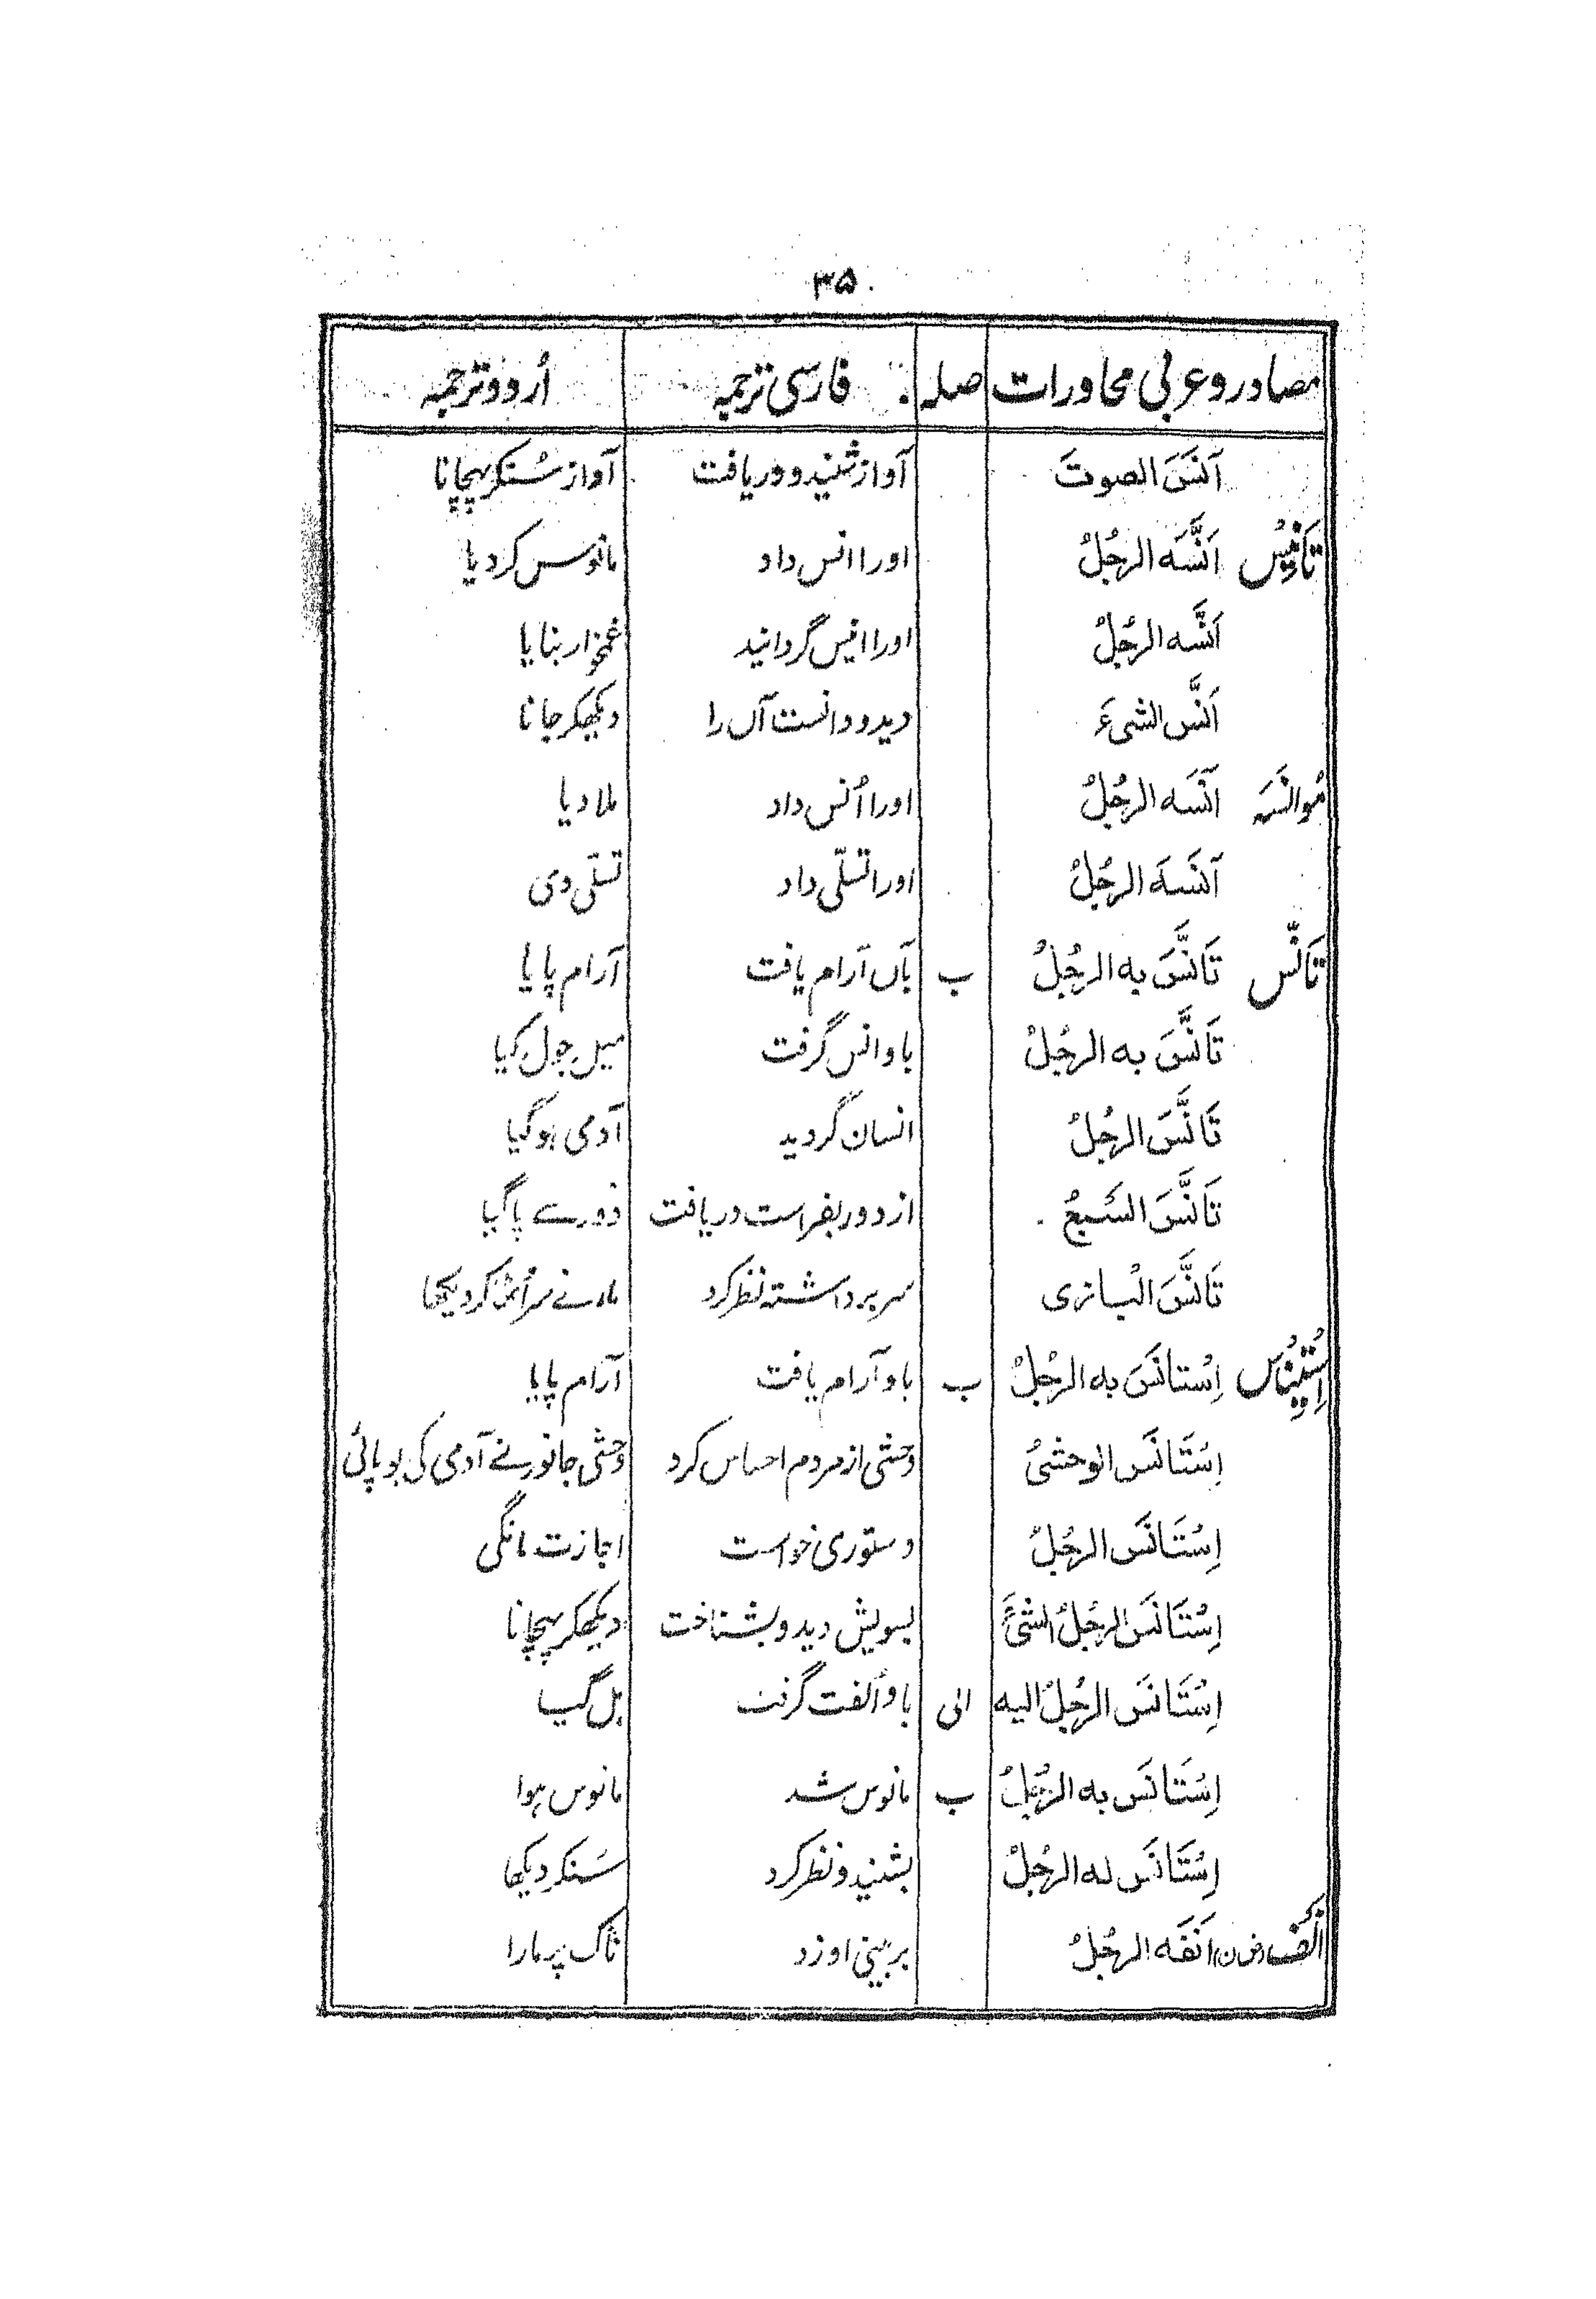 ۳۵
مصادر و عربی محاورات صلہ فارسی ترجمہ اُردو ترجمہ
آنَسَ الصوتَ آواز شنید و دریافت آواز سُنکر پہچانا
تَانِیْس اَنَّسَه الرجُلُ اورا انس داد مانوس کر دیا
اَنَّسَه الرجُلُ اورا انیس گردانید غمخوار بنایا
اَنَّسَ الشیءَ دید و دانست آں را دیکھکر جانا
مُوانَسَہ آنَسَه الرجُلُ اورا اُنس داد ملا دیا
آنَسَهَ الرجُلُ اورا تسلّی داد تسلّی دی
تَانُّس تَانَّسَ بِه الرجُلُ ب بآں آرام یافت آرام پایا
تَانَّسَ به الرجُلُ باو انس گرفت میل جول کیا
تَانَّسَ الرجُلُ انسان گردید آدمی ہو گیا
تَانَّسَ السَبعُ از دور بفراست دریافت دور سے پا گیا
تَانَّسَ الْبازی سر برداشتہ نظر کرد نے سر اُٹھا کر دیکھا
اِسْتِیْنَاس اِسْتانَسَ بِه الرجُلُ ب باو آرام یافت آرام پایا
اِسْتَانَسَ الوحشیُ وحشی از مردم احساس کرد وحشی جانور نے آدمی کی بو پائی
اِسْتَانَسَ الرجُلُ دستوری خواست اجازت مانگی
اِسْتَانَسَ الرجُلُ الشیَٔ بسویش دید و بشناخت دیکھکر پہچانا
اِسْتَانَسَ الرجُلُ الیه الی باو اُلفت گرفت ہل گیا
اِسْتَانَسَ بِه الرجُلُ ب مانوس شد مانوس ہوا
اِسْتَانَسَ له الرجُلُ بشنید و نظر کرد سُنکر دیکھا
اَنْف (ض ن) اَنَفَه الرجُلُ بر بینی او زد ناک پر مارا